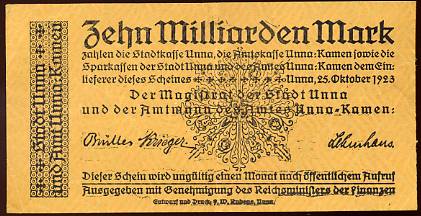 Stadt Unna
und Amt Unna-Kamen
Zehn Milliarden Mark
zahlen die Stadtkasse Unna, die Amtskasse Unna-Kamen sowie die
Sparkassen der Stadt Unna und des Amtes Unna-Kamen dem Ein-
lieferer dieses Scheines Unna, 25. Oktober 1923
Der Magistrat der Stadt Unna
und der Amtmann des Amtes Unna-Kamen:
Dieser Schein wird ungültig einen Monat nach öffentlichem Aufruf
Ausgegeben mit Genehmigung des Reichsministers der Finanzen
Entwurf und Druck: F. W. Rubens, Unna.